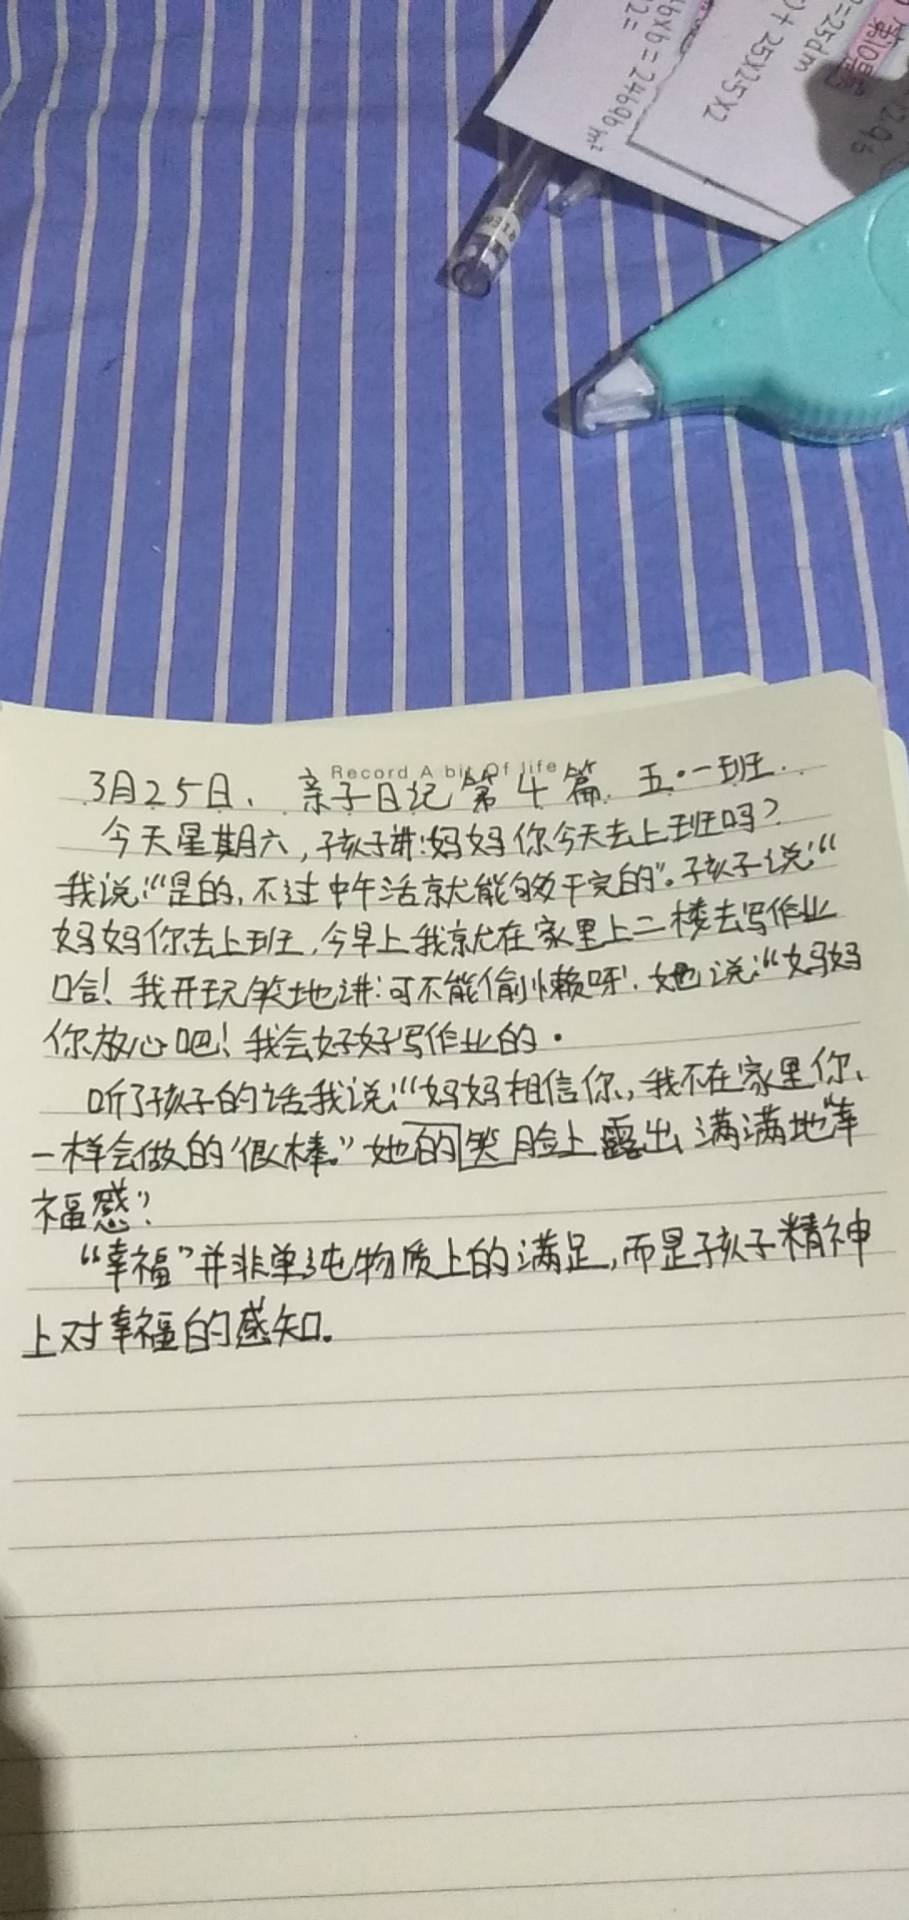 第10题
=25dm
)+25×25×2
b×b=2460b m²
12=
Record A bit Of life
3月25日、亲子日记第4篇.五·一班.
今天星期六,孩子讲:妈妈你今天去上班吗?
我说:“是的,不过中午活就能够干完的”。孩子说:“
妈妈你去上班,今早上我就在家里上二楼去写作业
哈!我开玩笑地讲:可不能偷懒呀!她说:“妈妈
你放心吧!我会好好写作业的.
听了孩子的话我说:“妈妈相信你,我不在家里你、
一样会做的很棒。”她的笑脸上露出满满地“幸
福感”?
“幸福”并非单纯物质上的满足,而是孩子精神
上对幸福的感知。